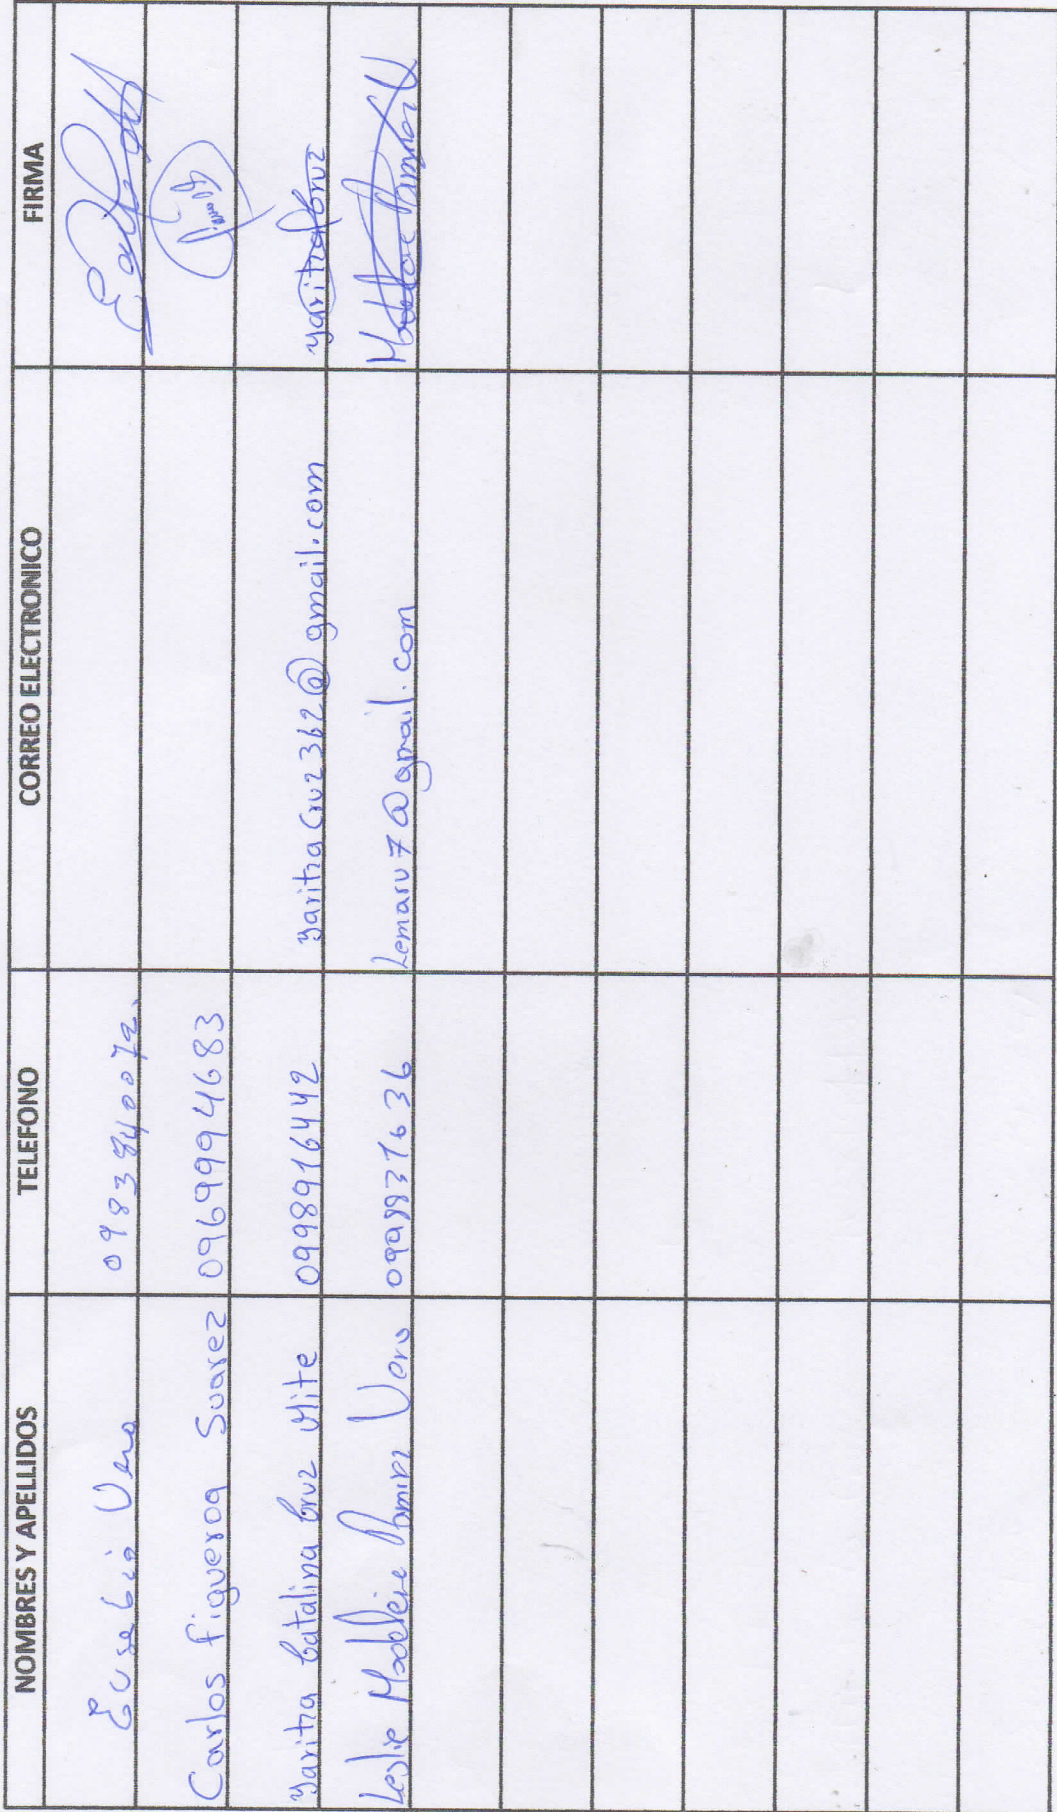 NOMBRES Y APELLIDOS TELEFONO CORREO ELECTRONICO FIRMA
Eusebio Vera 0983940072
Carlos Figueroa Suarez 0969994683
Yaritza Catalina Cruz Mite 0998916442 YaritzaCruz362@gmail.com yaritza Cruz
Leslie Madeleine Vera 099837636 Lemarv7@gmail.com